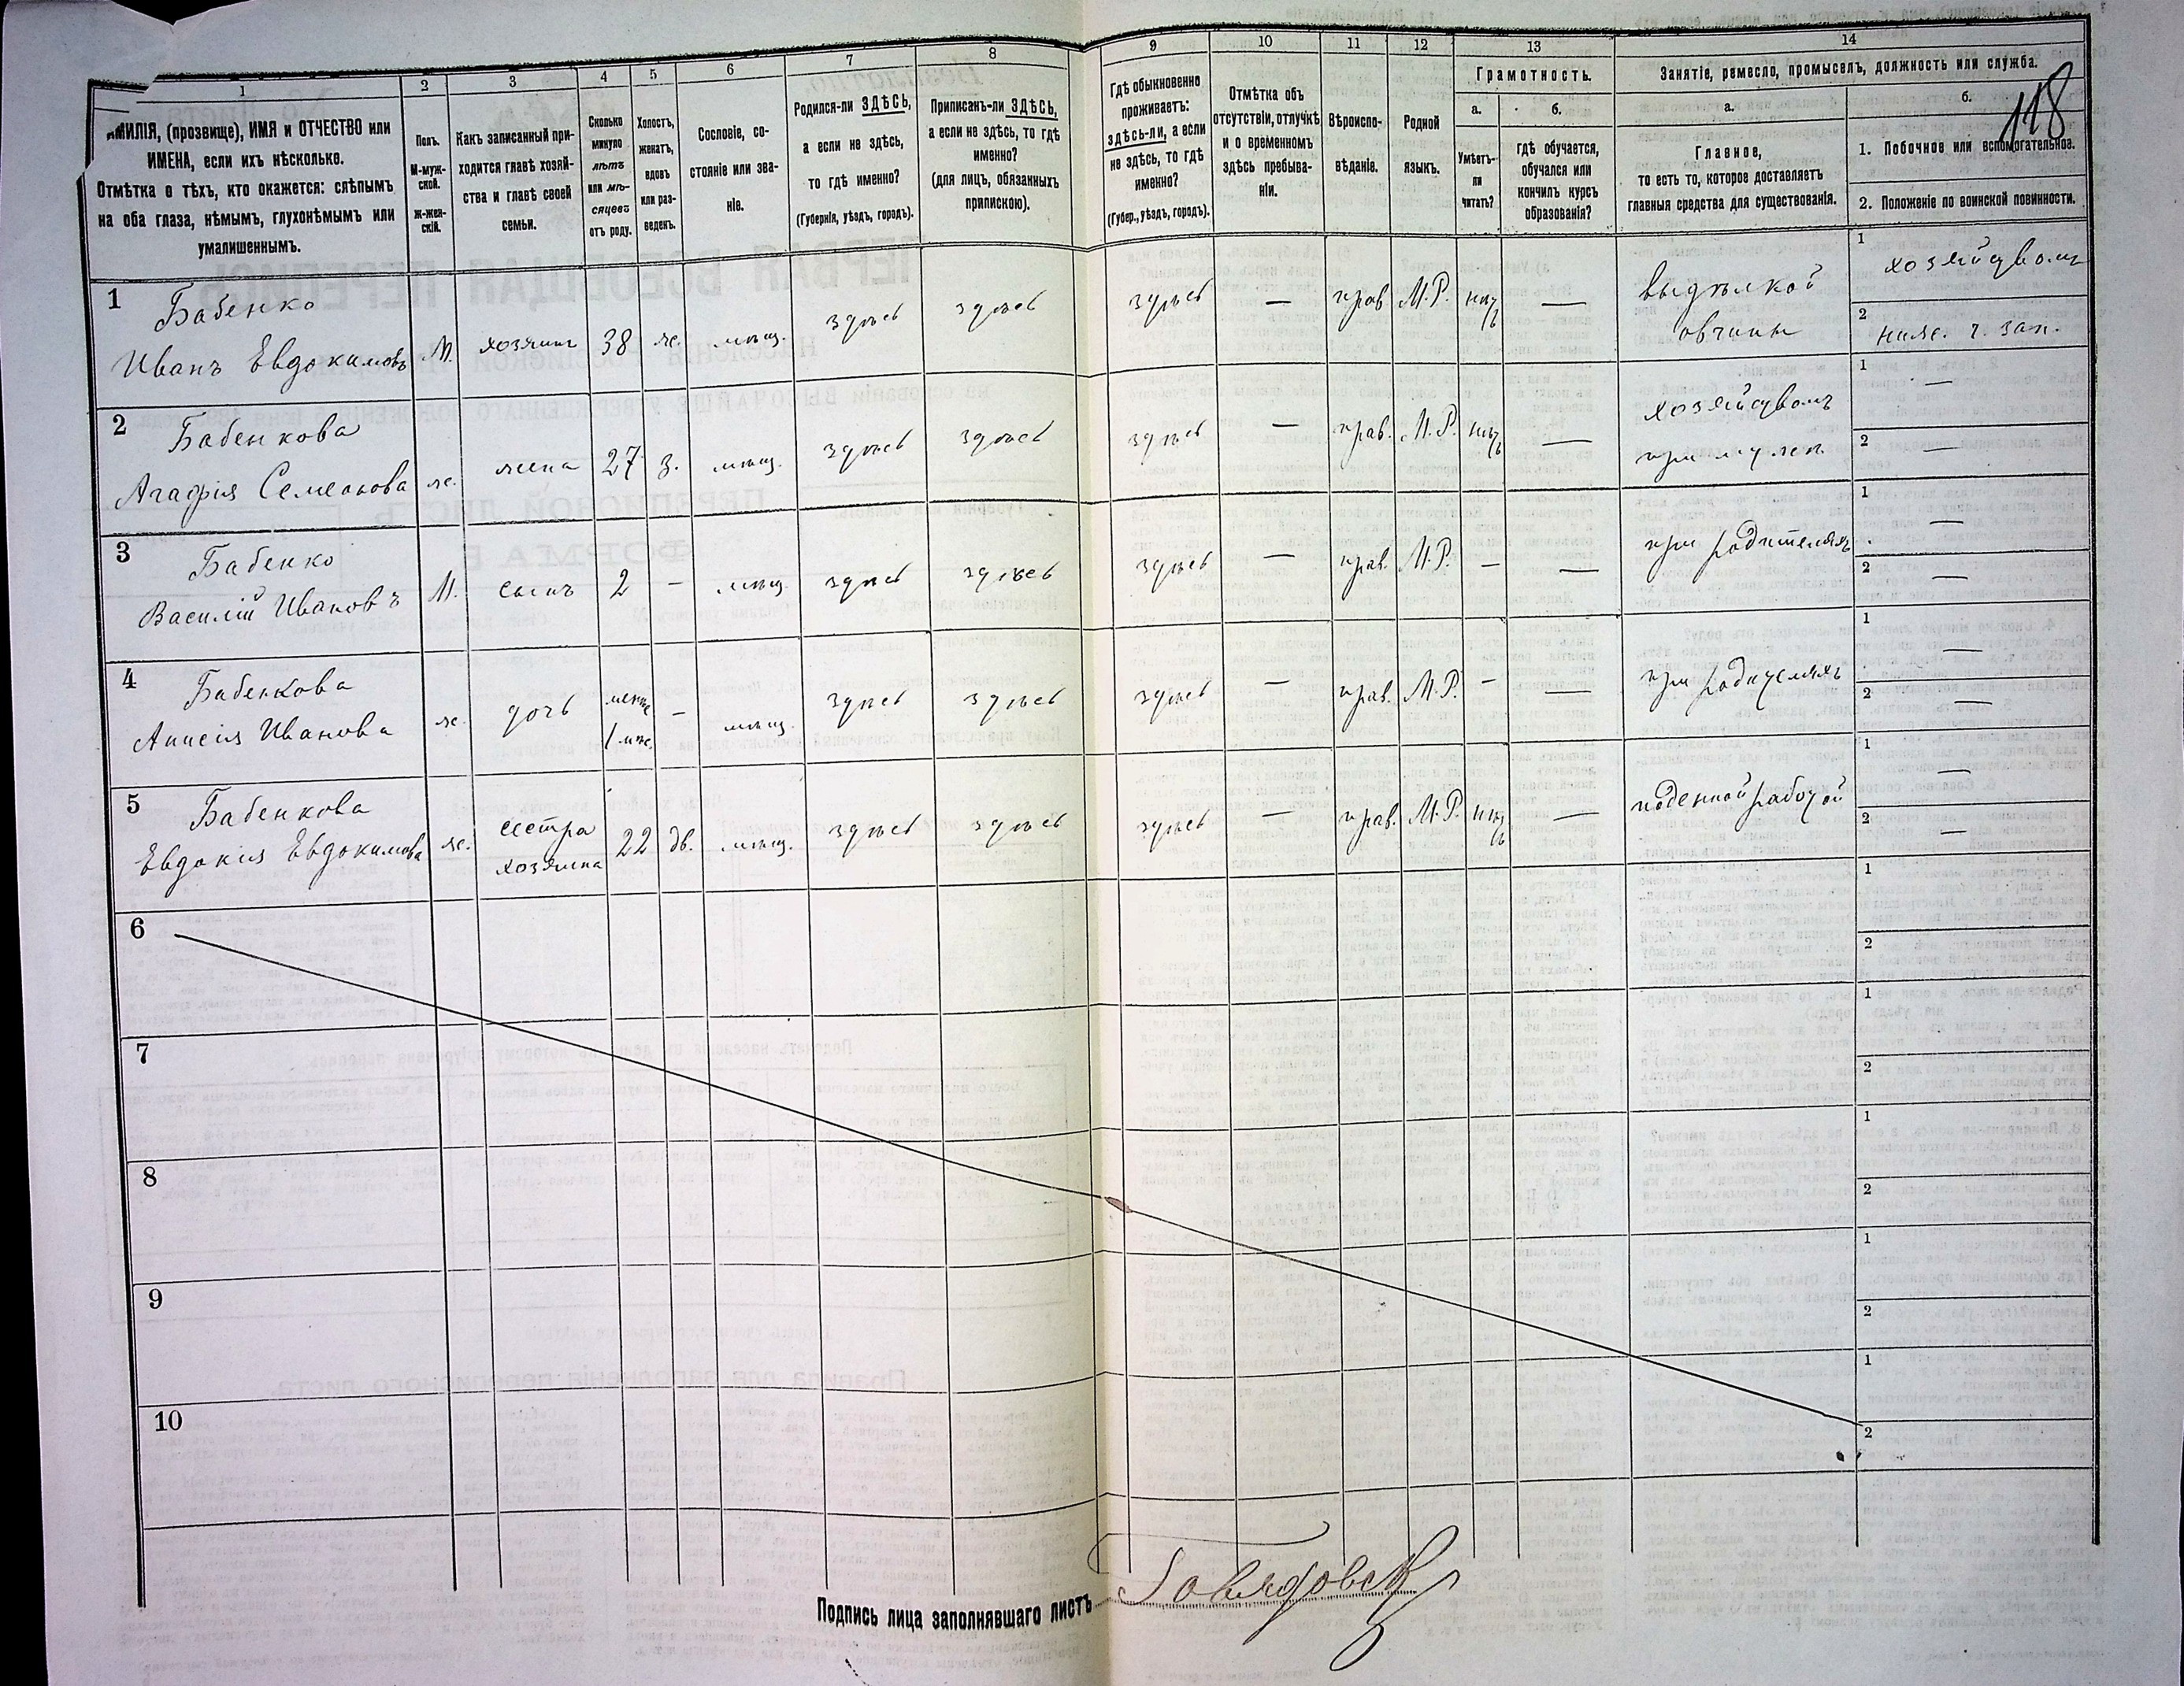 1
2
3
4
5
6
7
8
9
10
11
12
13
14
АМИЛІЯ, (прозвище), ИМЯ и ОТЧЕСТВО или
ИМЕНА, если ихъ нѣсколько.
Отмѣтка о тѣхъ, кто окажется: слѣпымъ
на оба глаза, нѣмымъ, глухонѣмымъ или
умалишеннымъ.
Полъ.
М-муж-
ской.
Ж-жен-
скій.
Какъ записанный при-
ходится главѣ хозяй-
ства и главѣ своей
семьи.
Сколько
минуло
лѣтъ
или мѣ-
сяцевъ
отъ роду.
Холостъ,
женатъ,
вдовъ
или раз-
веденъ.
Сословіе, со-
стояніе или зва-
ніе.
Родился-ли ЗДѢСЬ,
а если не здѣсь,
то гдѣ именно?
(Губернія, уѣздъ, городъ).
Приписанъ-ли ЗДѢСЬ,
а если не здѣсь, то гдѣ
именно?
(для лицъ, обязанныхъ
припискою).
Гдѣ обыкновенно
проживаетъ:
здѣсь-ли, а если
не здѣсь, то гдѣ
именно?
(Губер., уѣздъ, городъ).
Отмѣтка объ
отсутствіи, отлучкѣ
и о временномъ
здѣсь пребыва-
ніи.
Вѣроиспо-
вѣданіе.
Родной
языкъ.
Грамотность.
а.
б.
Умѣетъ-
ли
читать?
гдѣ обучается,
обучался или
кончилъ курсъ
образованія?
Занятіе, ремесло, промыселъ, должность или служба.
а.
б.
118
Главное,
то есть то, которое доставляетъ
главныя средства для существованія.
1. Побочное или вспомогательное.
2. Положеніе по воинской повинности.
1
Бабенко
Иванъ Евдокимовъ
М.
хозяинъ
38
ж.
мѣщ.
здѣсь
здѣсь
здѣсь
—
прав
М.Р.
нѣтъ
—
выдѣлкой
овчины
1
хозяйствомъ
2
ниж. ч. зап.
2
Бабенкова
Агафія Семеонова
ж.
жена
27
з.
мѣщ.
здѣсь
здѣсь
здѣсь
—
прав.
М.Р.
нѣтъ
—
хозяйствомъ
при мужѣ
1
—
2
—
3
Бабенко
Василій Ивановъ
М.
сынъ
2
—
мѣщ.
здѣсь
здѣсь
здѣсь
—
прав.
М.Р.
—
—
при родителяхъ
1
—
2
—
4
Бабенкова
Анисія Иванова
ж.
дочь
менѣе
1 мѣс.
—
мѣщ.
здѣсь
здѣсь
здѣсь
—
прав.
М.Р.
—
—
при родителяхъ
1
—
2
—
5
Бабенкова
Евдокія Евдокимова
ж.
сестра
хозяина
22
дв.
мѣщ.
здѣсь
здѣсь
здѣсь
—
прав.
М.Р.
нѣтъ
—
поденной работой
1
—
2
—
6
1
2
7
1
2
8
1
2
9
1
2
10
1
2
Подпись лица заполнявшаго листъ